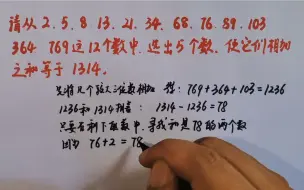 请从2、5、8、13、21、34、68、76、89、103
364 769这12个数中,选出5个数,使它们相加
之和等于1314。
先将几个较大三位数相加 得:769+364+103=1236
1236和1314相差: 1314-1236=78
只要在剩下数中,寻找和是78的两个数
因为 76+2=78